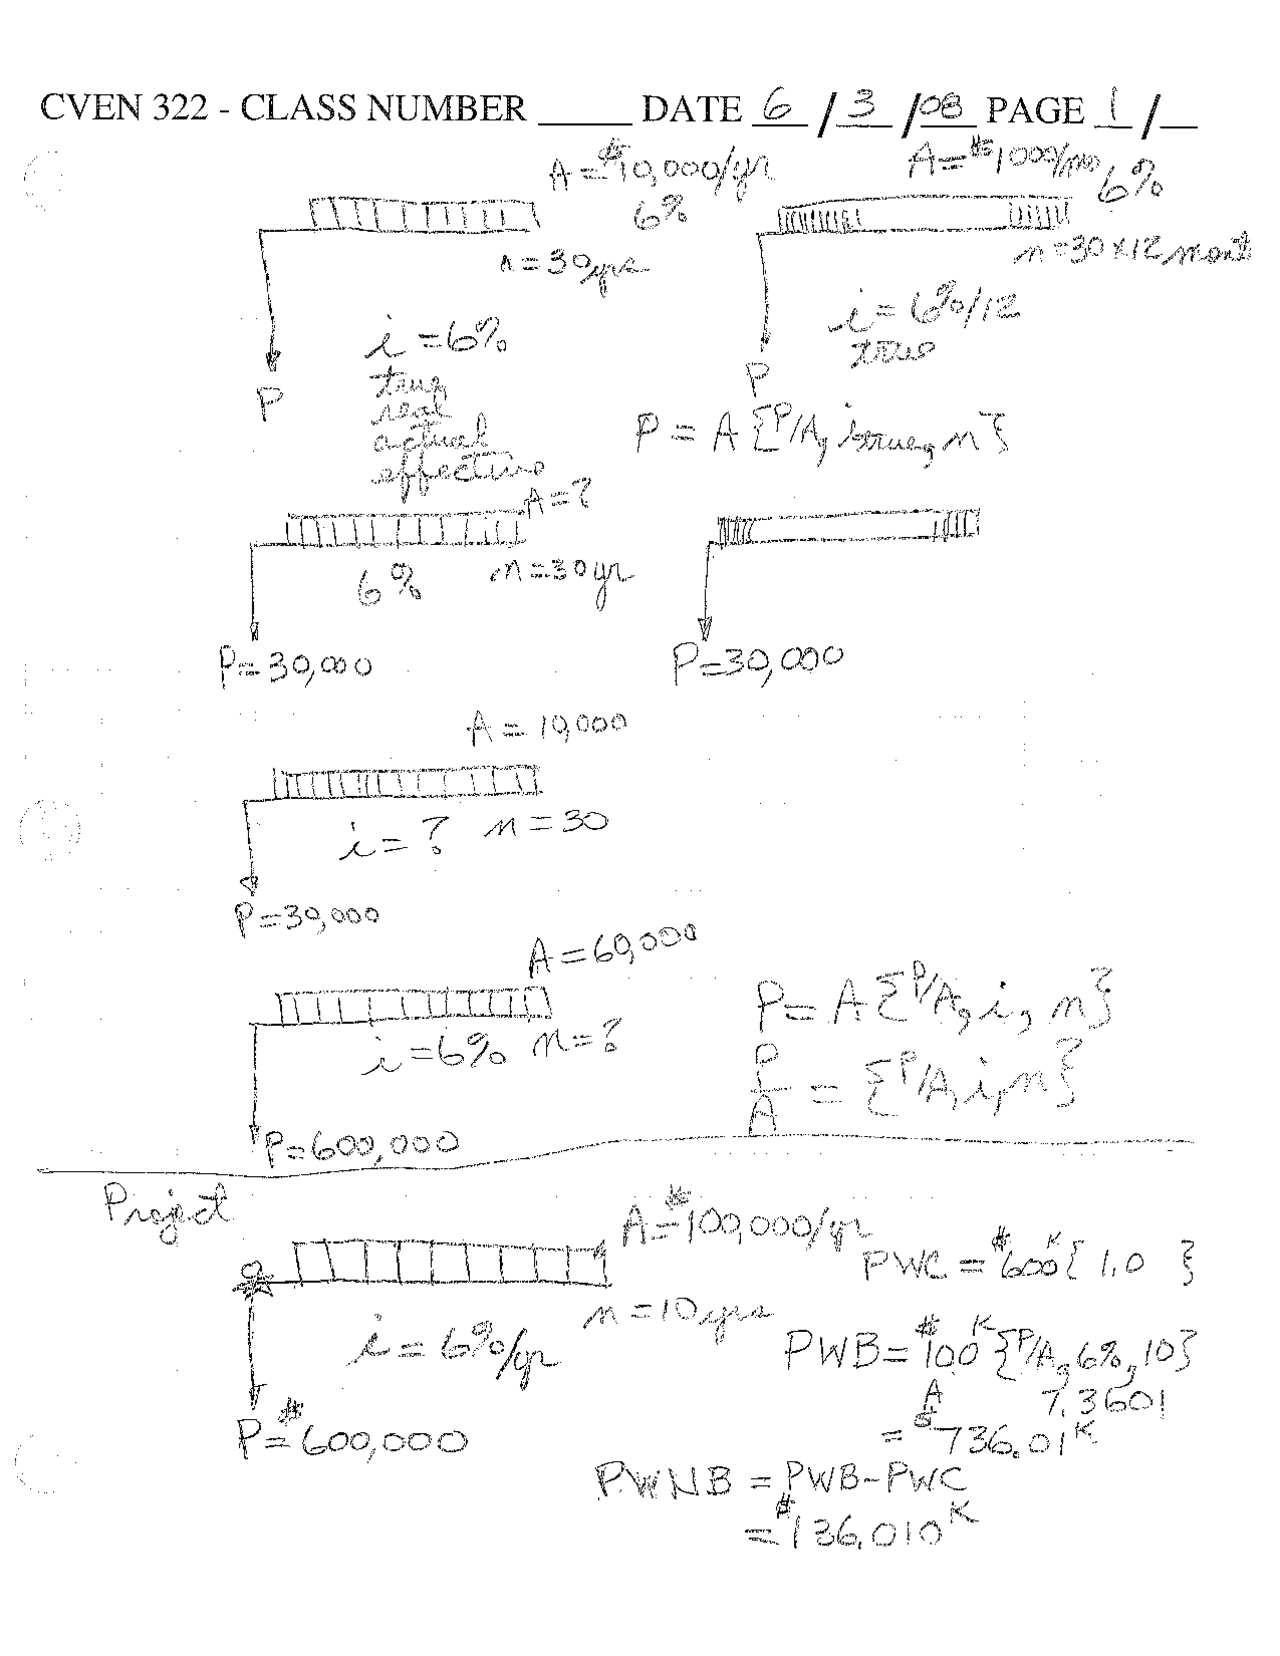 CVEN 322 - CLASS NUMBER _____ DATE 6 / 3 / 08 PAGE 1 / __
A = $10,000/yr
6%
n = 30 yrs
P
i = 6%
true
real
actual
effective
A = $1000/mo
6%
n = 30 x 12 mont
i = 6%/12
true
P
P = A {P/A, i true, n}
A = ?
6%
n = 30 yr
P = 30,000
P = 30,000
A = 10,000
i = ? n = 30
P = 30,000
A = 60,000
i = 6% n = ?
P = 600,000
P = A {P/A, i, n}
P/A = {P/A, i, n}
Project
A = $100,000/yr
n = 10 yrs
i = 6%/yr
P = $600,000
PWC = $600K { 1.0 }
PWB = $100K {P/A, 6%, 10}
A 7.3601
= $736.01K
PWNB = PWB - PWC
= $136.010K